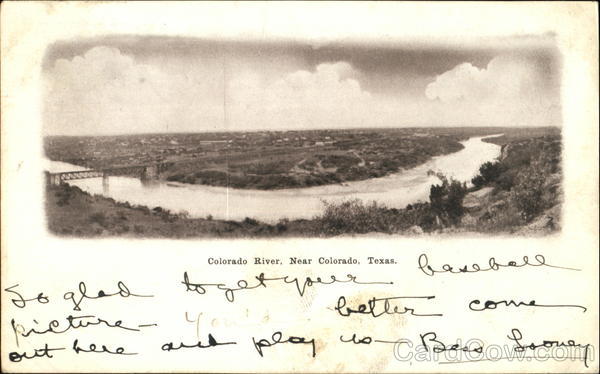 Colorado River, Near Colorado, Texas.
So glad to get your baseball
picture — You'd better come
out here and play us — Bess Looney
CardCow.com